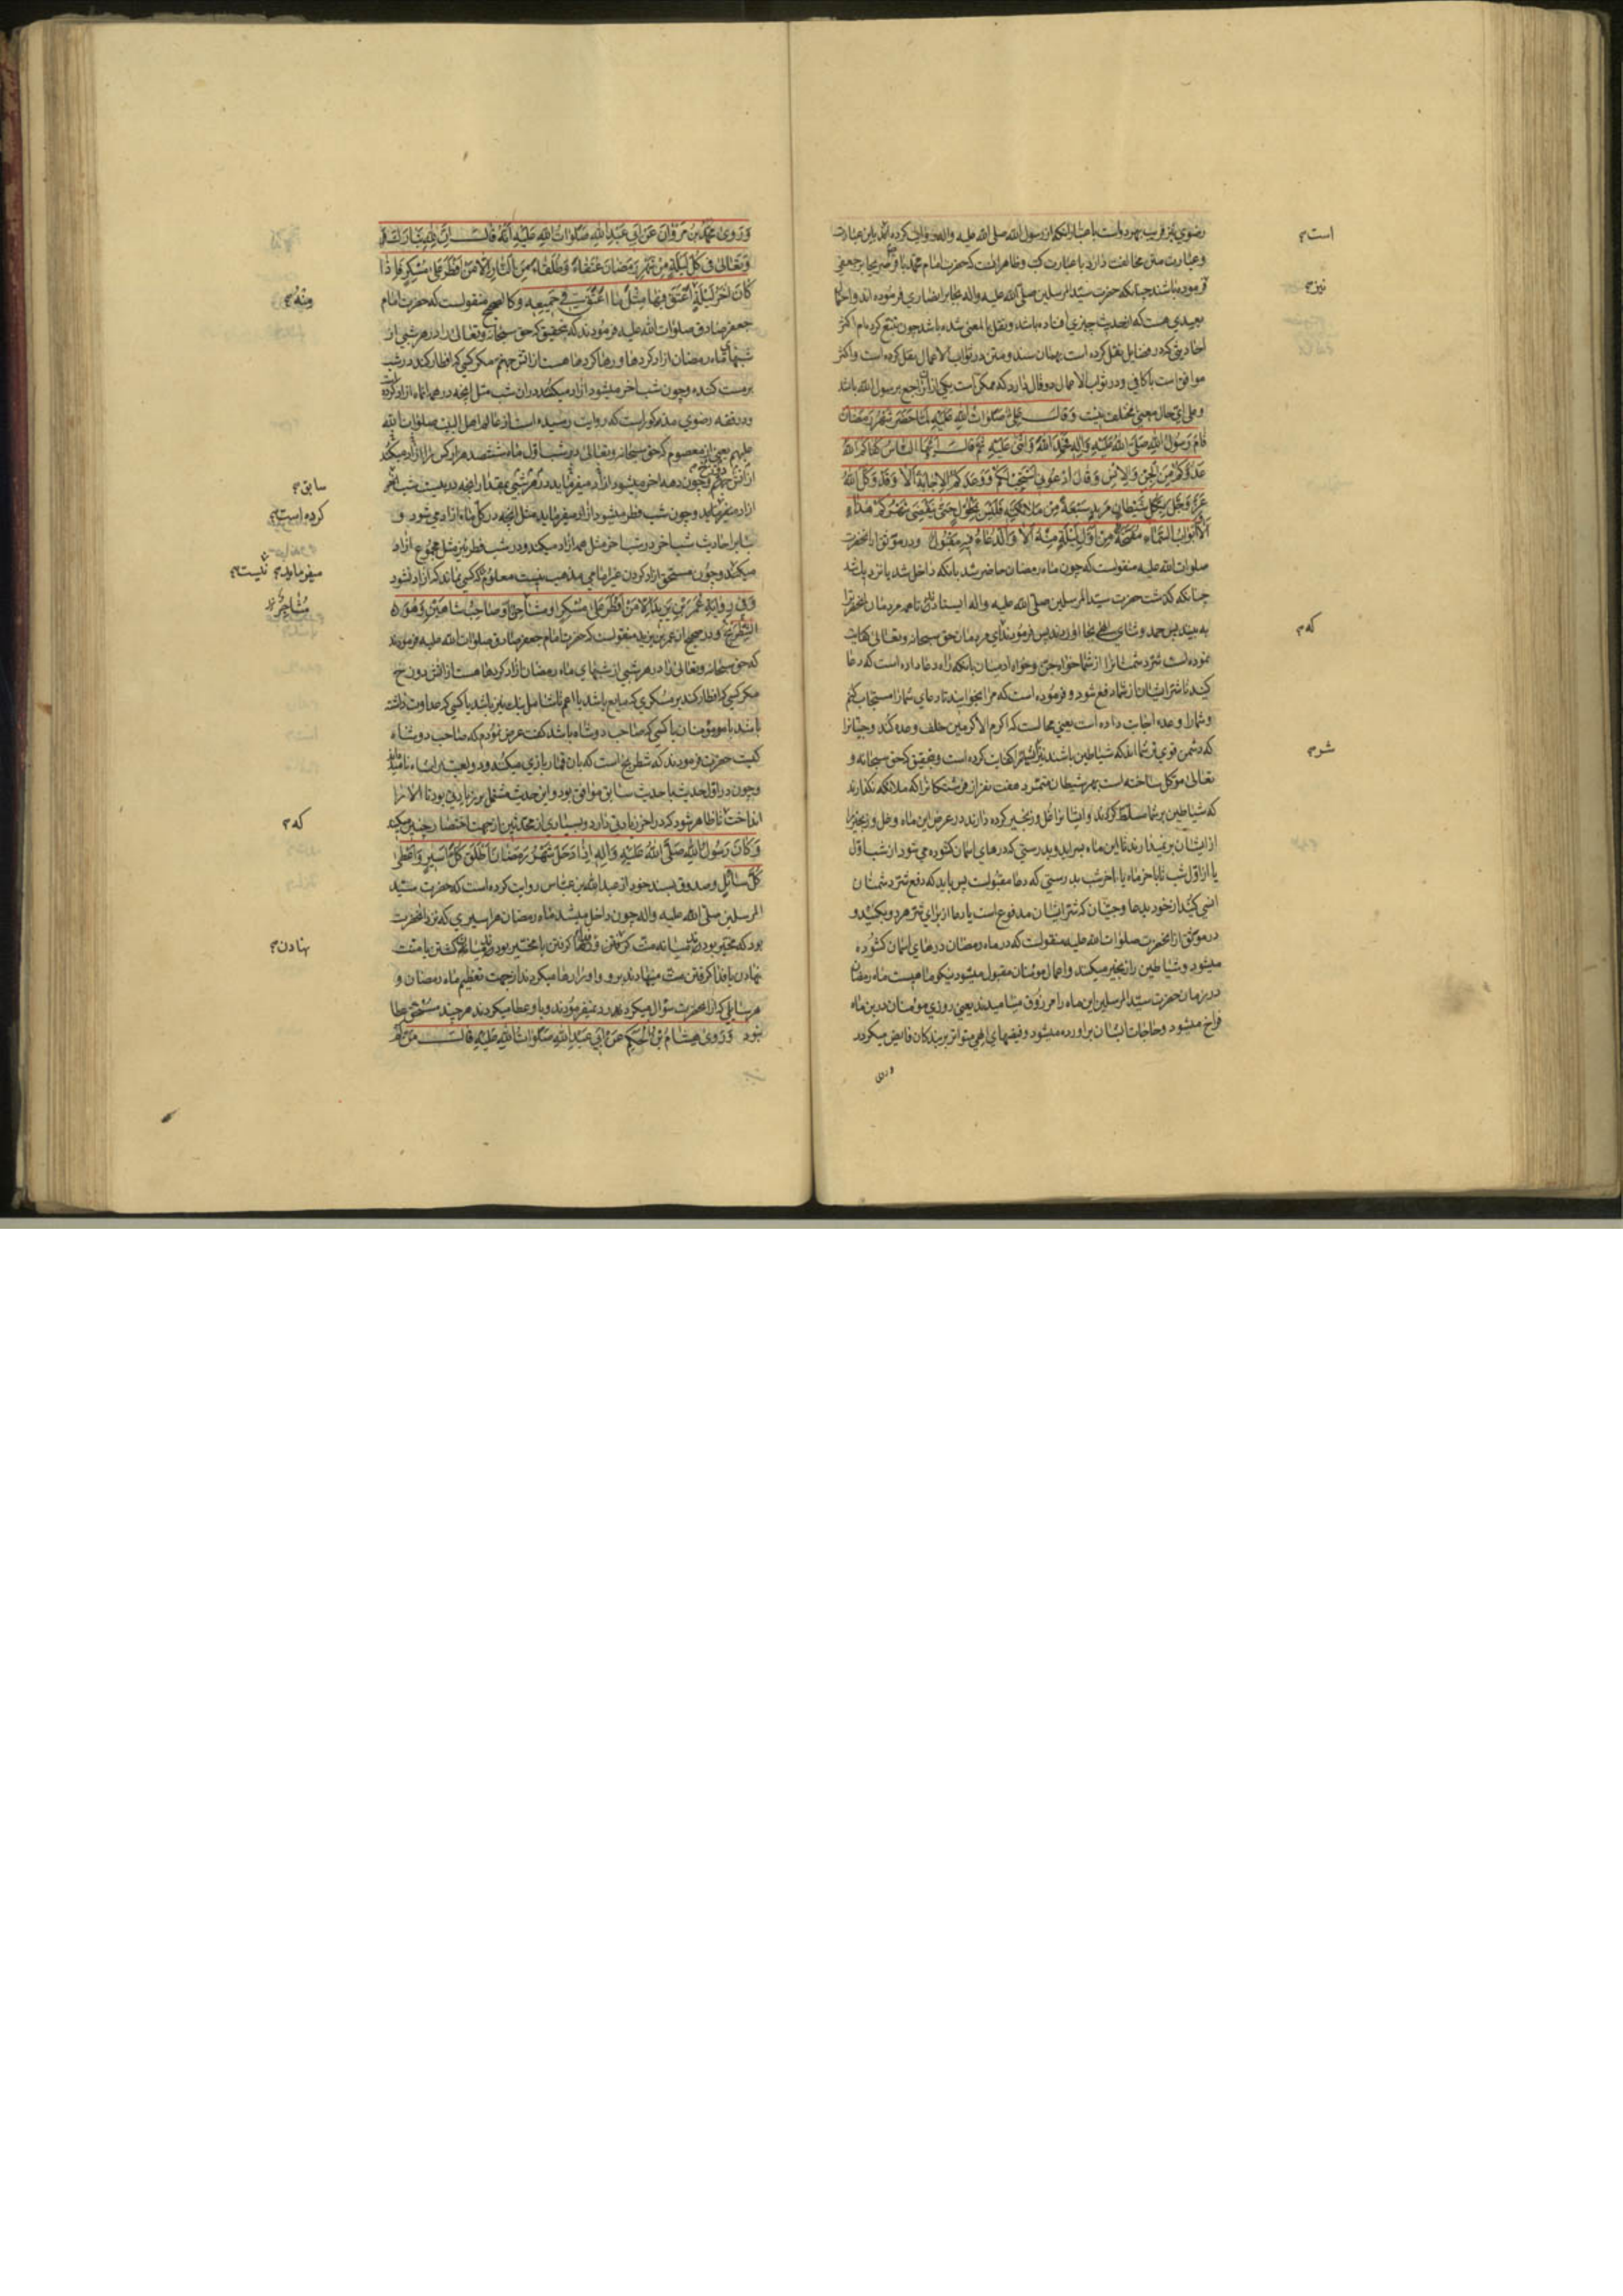 رضوي نیز قریب بهر دواست باعتبار انکه از رسول الله صلی الله علیه واله روایت کرده اند باین عبارت
وعبارت متن مخالفت دارد با عبارت کتب وظاهرا انست که حضرت امام محمد باقر نیز بجابر جعفی
فرموده باشند چنانکه حضرت سید المرسلین صلی الله علیه واله بجابر انصاری فرموده اند واحتمال
بعیدی هست که از حدیث چیزی افتاده باشد ونقل بالمعنی شده باشد چون تتبع کرده ام اکثر
احادیثی که در فضایل نقل کرده است بهمان سند ومتن در ثواب الاعمال نقل کرده است واکثر
موافق است با کافی ودر ثواب الاعمال دو قال دارد که ممکن است یکی ازان راجع برسول الله باشد
وعلی ای حال معنی مختلف نیست وَقالَ عَلِیٌّ صَلَواتُ اللهِ عَلَیْهِ لَمّا حَضَرَ شَهْرُ رَمَضانَ
قامَ رَسُولُ اللهِ صَلَّی اللهُ عَلَیْهِ وَالِهِ فَحَمِدَ اللهَ وَاَثْنی عَلَیْهِ ثُمَّ قالَ اَیُّهَا النّاسُ کَفاکُمُ اللهُ
عَدُوَّکُمْ مِنَ الْجِنِّ وَالْاِنْسِ وَقالَ اُدْعُونی اَسْتَجِبْ لَکُمْ وَوَعَدَکُمُ الْاِجابَةَ اَلا وَقَدْ وَکَّلَ اللهُ
عَزَّ وَجَلَّ بِکُلِّ شَیْطانٍ مَریدٍ سَبْعَةً مِنْ مَلائِکَتِهِ فَلَیْسَ بِمَحْلُولٍ حَتّی یَنْقَضِیَ شَهْرُکُمْ هذا
اَلا وَاَبْوابُ السَّماءِ مُفَتَّحَةٌ مِنْ اَوَّلِ لَیْلَةٍ مِنْهُ اَلا وَالدُّعاءُ فیهِ مَقْبُولٌ ودر موثق از انحضرت
صلوات الله علیه منقولست که چون ماه رمضان حاضر شد بانکه داخل شد یا نزدیک شد
چنانکه گذشت حضرت سید المرسلین صلی الله علیه واله ایستادند تا همه مردمان انحضرت را
به بینند پس حمد وثنای الهی بجا اوردند پس فرمودند ای مردمان حق سبحانه وتعالی کفایت
نموده است شر دشمنانرا از شما خواه جن وخواه ادمیان بانکه راه دعا داده است که دعا
کنید تا شر ایشان از شما دفع شود و فرموده است که مرا بخوانید تا دعای شما را مستجاب کنم
وشما را وعده اجابت داده است یعنی محالست که اکرم الاکرمین خلف وعده کند وجنیانرا
که دشمن قوی تر شما اند که شیاطین باشند نیز از شما کفایت کرده است وبتحقیق که حق سبحانه و
تعالی موکل ساخته است بهر شیطان متمرد هفت نفر از فرشتگانرا که ملائکه نگذارند
که شیاطین بر شما مسلط گردند وایشانرا غل وزنجیر کرده دارند در عرض این ماه وغل وزنجیر را
از ایشان بر نمیدارند تا این ماه بسر اید وبدرستی که درهای اسمان گشوده می شود از شب اول
یا از اول شب تا باخر ماه یا باخر شب بدرستی که دعا مقبولست پس باید که دفع شر دشمنان
انسی کنید از خود بدعا وجنیان که شر ایشان مدفوع است یا دعا از برای شر هر دو بکنید و
در موثق از انحضرت صلوات الله علیه منقولست که در ماه رمضان درهای اسمان گشوده
میشود وشیاطین را زنجیر میکنند واعمال مومنان مقبول میشود نیکو ماهیست ماه رمضان
در زمان حضرت سید المرسلین این ماه را مرزوق مینامیدند یعنی روزی مومنان درین ماه
فراخ میشود وحاجات ایشان براورده میشود وفیضهای الهی متواتر بر بندگان فائض میگردد
وروی
است
نیز
که
شر
وَرَوی مُحَمَّدُ بْنُ مَرْوانَ عَنْ اَبی عَبْدِ اللهِ صَلَواتُ اللهِ عَلَیْهِ اَنَّهُ قالَ اِنَّ لِلّهِ تَبارَكَ
وَتَعالی فی کُلِّ لَیْلَةٍ مِنْ شَهْرِ رَمَضانَ عُتَقاءَ وَطُلَقاءَ مِنَ النّارِ اِلّا مَنْ اَفْطَرَ عَلی مُسْکِرٍ فَاِذا
کانَ اخِرُ لَیْلَةٍ اَعْتَقَ فیها مِثْلَ ما اَعْتَقَ فی جَمیعِهِ وکالصحیح منقولست که حضرت امام
جعفر صادق صلوات الله علیه فرمودند که بتحقیق که حق سبحانه وتعالی را در هر شبی از
شبهای ماه رمضان ازاد کردها ورها کردها هست از اتش جهنم مگر کسی که افطار کند در شب
بر مست کننده وچون شب اخر میشود ازاد میکند دران شب مثل انچه در همه ماه ازاد کرده است
ودر فقه رضوی مذکور است که روایت رسیده است از عالم اهل البیت صلوات الله
علیهم یعنی از معصوم که حق سبحانه وتعالی در شب اول ماه ششصد هزار کس را ازاد میکند
از اتش جهنم وچون دهه اخر میشود ازاد میفرماید در هر شبی بمقدار انچه در بیست شب
ازاد میفرماید وچون شب فطر میشود ازاد میفرماید مثل انچه در کل ماه ازاد می شود و
بنابر احادیث شب اخر در شب اخر مثل همه ازاد میکند ودر شب فطر نیز مثل مجموع ازاد
میکند وچون مستحق ازاد کردن غیر امامی مذهب نیست معلوم که کسی نماند که ازاد نشود
وَفی رِوایَةِ عُمَرَ بْنِ یَزیدَ اِلّا مَنْ اَفْطَرَ عَلی مُسْکِرٍ اَوْ مُشاحِنٌ اَوْ صاحِبُ شاهَیْنِ وَهُوَ
الشِّطْرَنْجُ ودر صحیح از عمر بن یزید منقولست که حضرت امام جعفر صادق صلوات الله علیه فرمودند
که حق سبحانه وتعالی را در هر شبی از شبهای ماه رمضان ازاد کردها هست از اتش دوزخ
مگر کسی که افطار کند بر مسکری که مایع باشد یا اعم تا شامل بنك نیز باشد یا کسی که عداوت داشته
باشد با مومنان یا کسی که صاحب دو شاه باشد گفت عرض نمودم که صاحب دو شاه
کیست حضرت فرمودند که شطرنج است که بان قمار بازی میکنند
وچون در اول حدیث با حدیث سابق موافق بود واین حدیث مشتمل بر زیادتی بود تا الا را
انداخت تا ظاهر شود که در اخر زیادتی دارد وبسیاری از محدثین از جهت اختصار چنین میکنند
وَکانَ رَسُولُ اللهِ صَلَّی اللهُ عَلَیْهِ وَالِهِ اِذا دَخَلَ شَهْرُ رَمَضانَ اَطْلَقَ کُلَّ اَسیرٍ وَاَعْطی
کُلَّ سائِلٍ وصدوق بسند خود از عبد الله بن عباس روایت کرده است که حضرت سید
المرسلین صلی الله علیه واله چون داخل میشد ماه رمضان هر اسیری که نزد انحضرت
بود که مخیر بودند میانه
نهادن یا فدا گرفتن منت مینهادند برو واورا رها میکردند از جهت تعظیم ماه رمضان و
هر سایلی که از انحضرت سؤال میکرد رد نمیفرمودند وباو عطا میکردند هر چند مستحق عطا
نبود وَرَوی هِشامُ بْنُ الْحَکَمِ عَنْ اَبی عَبْدِ اللهِ صَلَواتُ اللهِ عَلَیْهِ قالَ مَنْ لَمْ
منه
سابق
کرده است
میفرماید نیست
مشاحن
که
نهادن